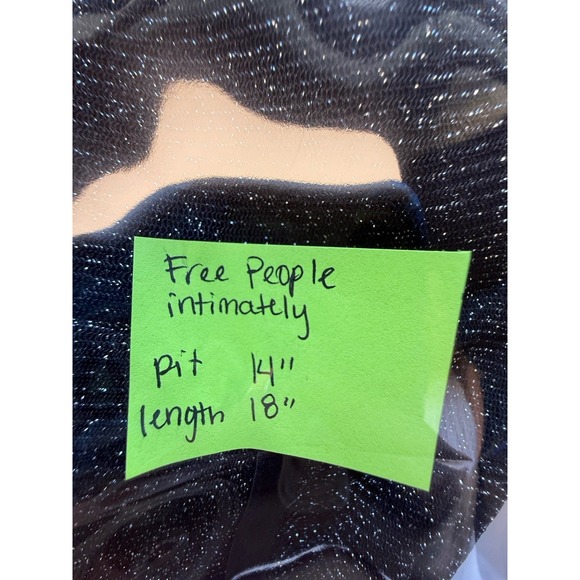 Free People
intimately
pit 14"
length 18"